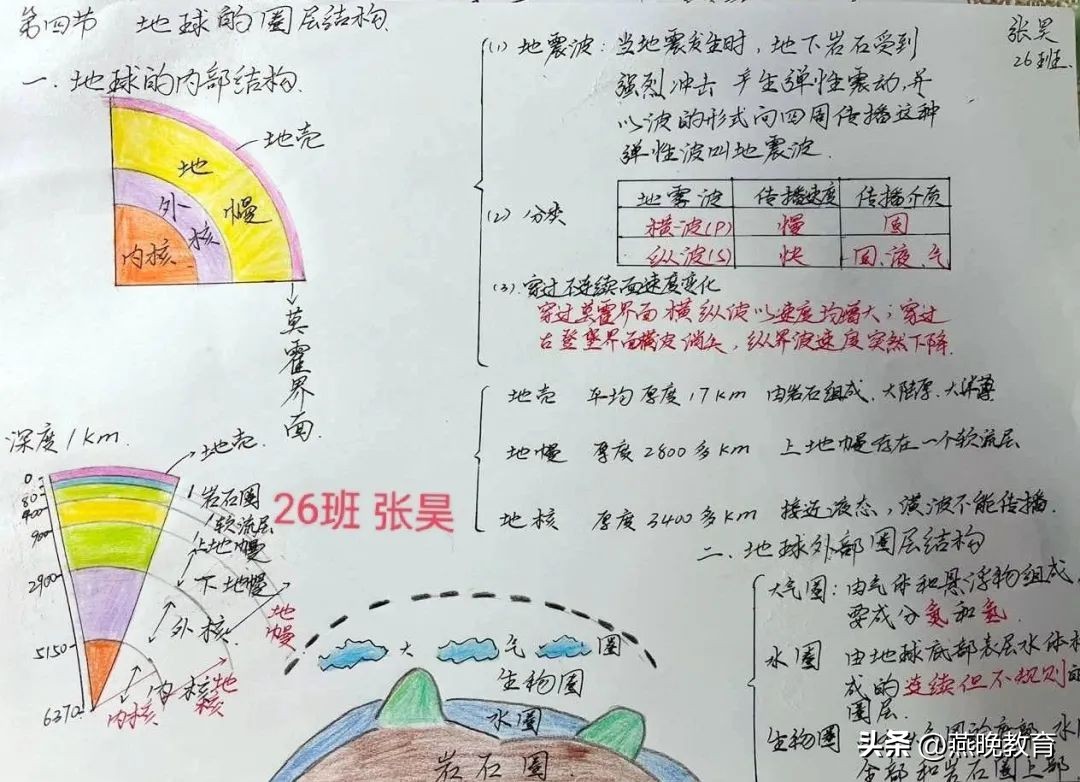 第四节 地球的圈层结构
张昊
26班.
一.地球的内部结构.
地壳
地
幔
外
核
内核.
莫霍界面.
(1) 地震波：当地震发生时，地下岩石受到
强烈冲击 产生弹性震动,并
以波的形式向四周传播这种
弹性波叫地震波.
(2) 分类
地震波 传播速度 传播介质
横波(P) 慢 固
纵波(S) 快 固、液、气
(3).穿过不连续面速度变化
穿过莫霍界面 横纵波以速度均增大；穿过
古登堡界面横波消失，纵界波速度突然下降.
地壳 平均厚度17km 由岩石组成、大陆厚、大洋薄
地幔 厚度2800多km 上地幔存在一个软流层
地核 厚度3400多km 接近液态，横波不能传播.
深度/km.
地壳.
0
80
400
900
2900
5150
6370
岩石圈
软流层
上地幔
下地幔
地幔
外核
内核
地核
内核
26班 张昊
大 气 圈
生物圈
水圈
岩石圈.
二.地球外部圈层结构
大气圈：由气体和悬浮物组成,
要成分氮和氢
水圈 由地球底部表层水体
成的连续但不规则的
圈层.
生物圈
全部和岩石圈上部
头条 @燕晚教育